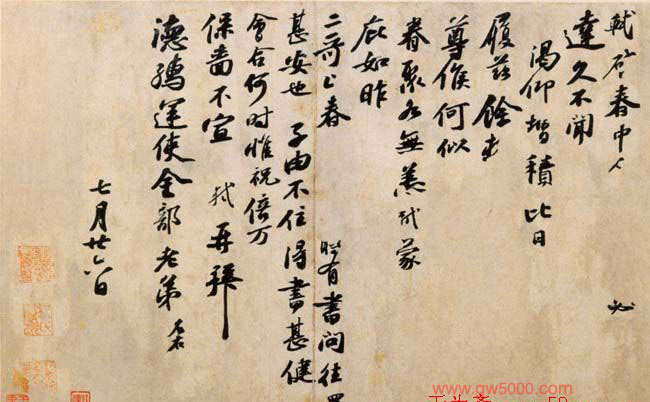 軾啓春中人 必
達久不聞
渴仰增積比日
履茲餘
尊候何似
眷聚各無恙軾蒙
庇如昨
二哥上春 時有書問往
甚安也子由不住得書甚健
會合何時惟祝倍万
保嗇不宣 軾再拜
德孺運使金部老弟
七月廿六日
www.gw5000.com